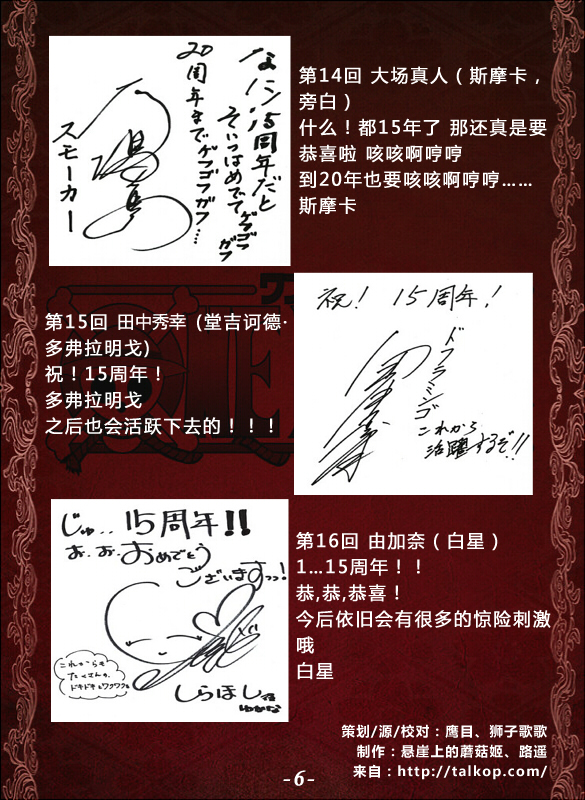 なに 15周年だと
そいつはめでてゲフゴフガフ
20周年までゲフゴフガフ…
スモーカー
第14回 大场真人（斯摩卡，
旁白）
什么！都15年了 那还真是要
恭喜啦 咳咳啊哼哼
到20年也要咳咳啊哼哼……
斯摩卡
第15回 田中秀幸 (堂吉诃德·
多弗拉明戈)
祝！15周年！
多弗拉明戈
之后也会活跃下去的！！！
祝！15周年！
ドフラミンゴ
これから
活躍するぞ!!
じゅ..15周年!!
お.お.おめでとう
ございますっっ!
これからも
たくさんの
ドキドキとワクワクを
しらほし
ゆかな
第16回 由加奈（白星）
1...15周年！！
恭,恭,恭喜！
今后依旧会有很多的惊险刺激
哦
白星
策划/源/校对：鹰目、狮子歌歌
制作：悬崖上的蘑菇姬、路遥
来自：http://talkop.com/
-6-